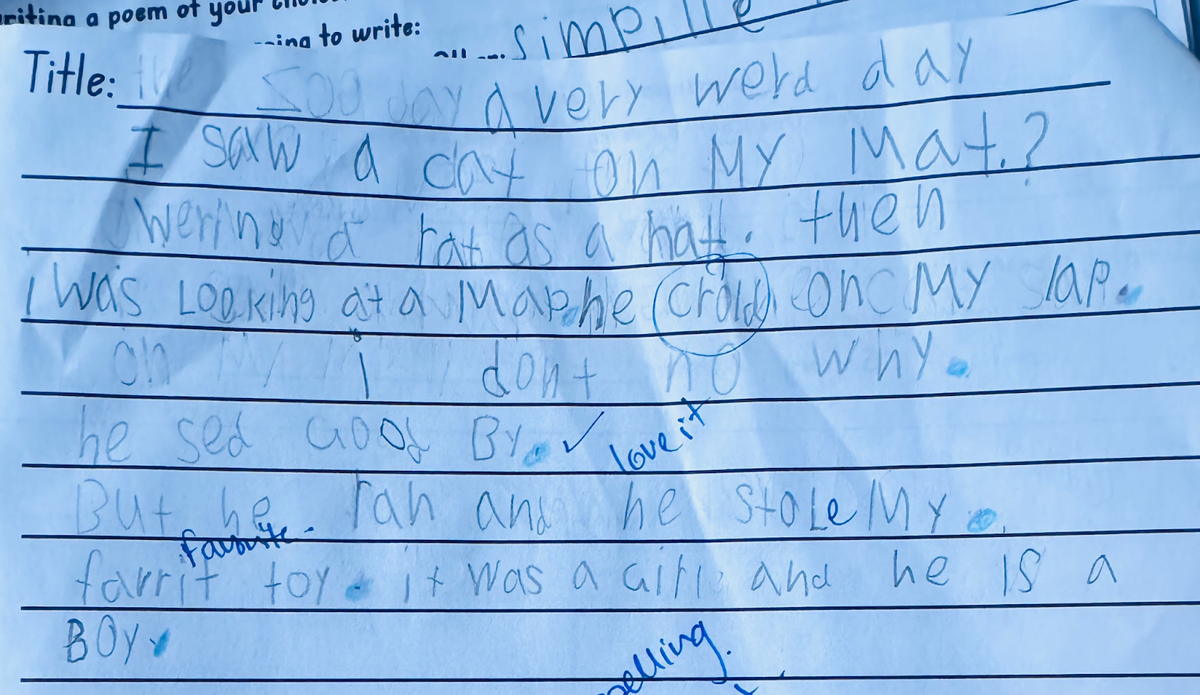 a poem of your
to write:
simpille
Title: the zoo day a very werd day
I saw a cat on My Mat.?
wering a rat as a hat. then
I was Looking at a Map.he crold on My lap.
oh My i dont no why.
he sed Good By. ✓ love it
But he ran and he stole My.
favourite -
farrit toy. it was a Girl and he is a
Boy.